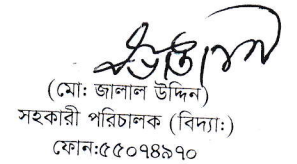 (মো: জালাল উদ্দিন)
সহকারী পরিচালক (বিদ্যা:)
ফোন:৫৫০৭৪৯৭০